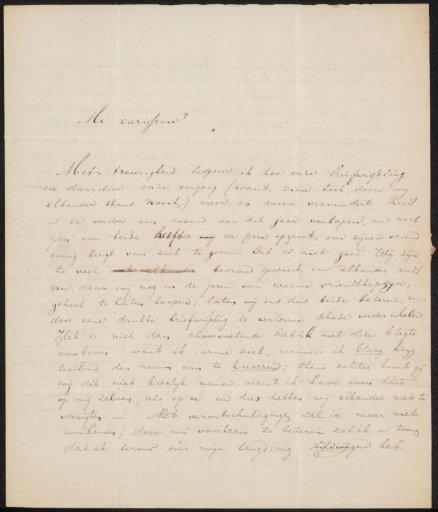 Mi carissime!
Met treurigheid bespeur ik hoe onze briefwisseling
en daardoor onze omgang (want zien toch doen wij
elkander thans nooit) meer en meer vermindert. Reeds
is er weder een maand van dit jaar verlopen, en noch
geen van beide de pen opgevat, om zijnen vriend
eenig berigt van zich te geven. Dit is niet goed. Wij zijn
te veel vrienden geweest, om elkander reeds
nu, daar wij nog in de jaren van warme vriendschap zijn,
geheel te laten loopen; laten wij ons dus beide beteren, en
door eene drukke briefwisseling de verlorene schade weder inhalen.
Het is niet dan schoorvoetende dat ik met deze klagte
aankoom: want ik arme ziel, wanneer ik klaag,
den naam van te knorren; thans echter kunt gij
mij dit niet kwalijk nemen, want ik knor even hard
op mij zelven, als op u en dus hebben wij elkander niets te
verwijten. — Met verontschuldigingen zal ik maar niet
aankomen; door mij voortaan te beteren zal ik u toonen
dat ik berouw over mijn langdurig stilzwijgen heb.